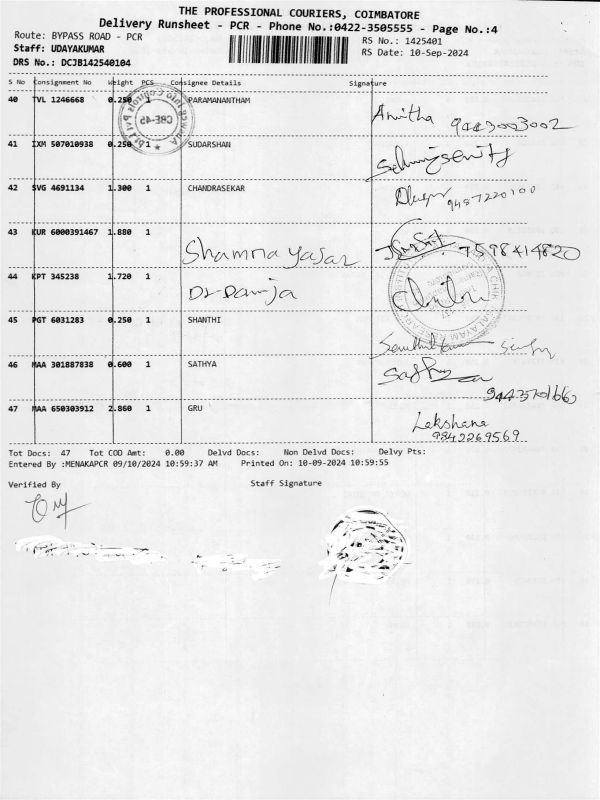 THE PROFESSIONAL COURIERS, COIMBATORE
Delivery Runsheet - PCR - Phone No.:0422-3505555 - Page No.:4
Route: BYPASS ROAD - PCR
RS No.: 1425401
Staff: UDAYAKUMAR
RS Date: 10-Sep-2024
DRS No.: DCJB142540104
S No Consignment No Weight PCS Consignee Details Signature
40 TVL 1246668 0.250 1 PARAMANANTHAM
Amitha 9443003002
41 IXM 507010938 0.250 1 SUDARSHAN
42 SVG 4691134 1.300 1 CHANDRASEKAR
9487220100
43 KUR 6000391467 1.880 1 Shamna yasar
7598414820
44 KPT 345238 1.720 1
45 PGT 6031283 0.250 1 SHANTHI
46 MAA 301887838 0.600 1 SATHYA
Sathya
47 MAA 650303912 2.860 1 GRU
Lakshana
9842269569
Tot Docs: 47 Tot COD Amt: 0.00 Delvd Docs: Non Delvd Docs: Delvy Pts:
Entered By :MENAKAPCR 09/10/2024 10:59:37 AM Printed On: 10-09-2024 10:59:55
Verified By Staff Signature